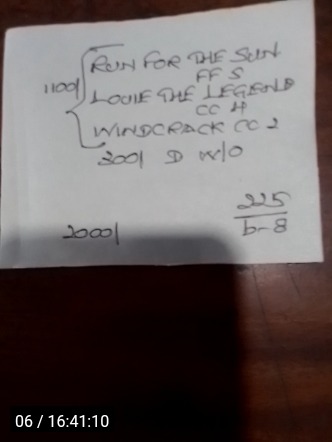 RUN FOR THE SUN
FF S
1100/ LOUIE THE LEGEND
CC 4
WINDCRACK CC 2
300/ D W/O
225
2000/ b-8
06 / 16:41:10